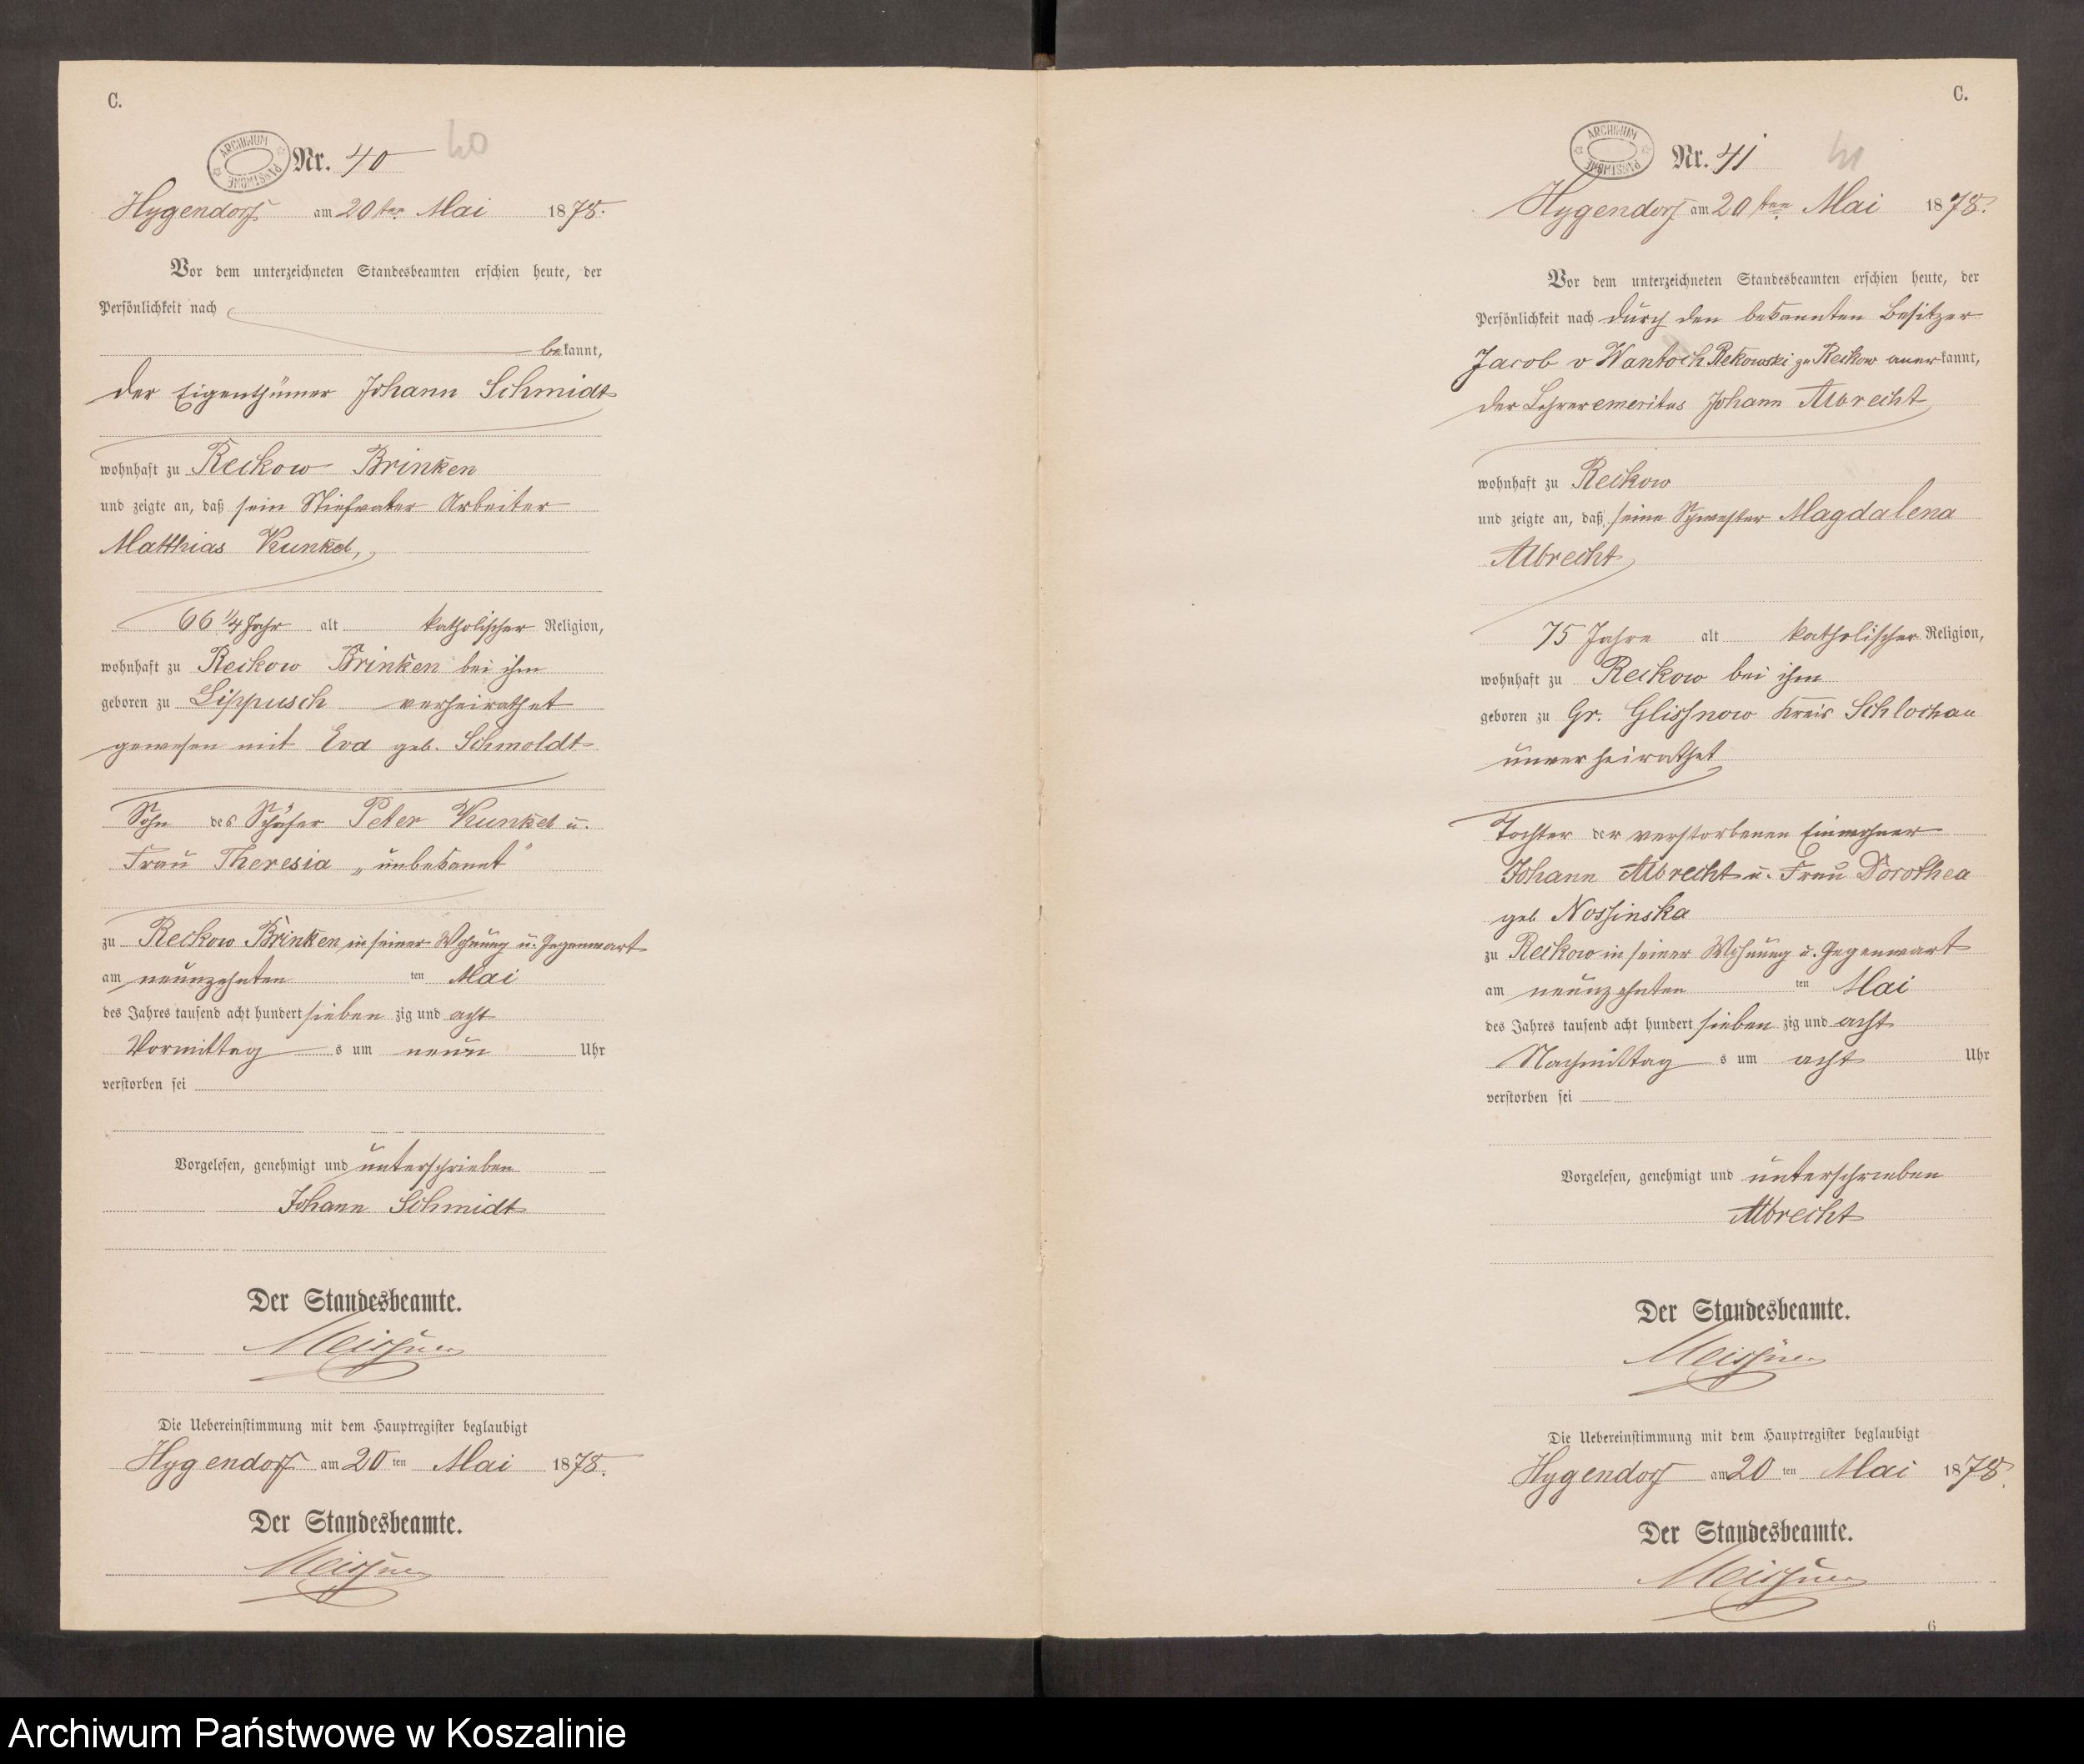 C.
ARCHIWUM PAŃSTWOWE
Nr. 40
40
Hygendorf am 20ten Mai 1878.
Vor dem unterzeichneten Standesbeamten erschien heute, der
Persönlichkeit nach
bekannt,
der Eigenthümer Johann Schmidt
wohnhaft zu Reckow Brinken
und zeigte an, daß sein Stiefvater Arbeiter
Matthias Kunkel,
66 1/4 Jahr alt katholischer Religion,
wohnhaft zu Reckow Brinken bei ihm
geboren zu Lippusch verheirathet
gewesen mit Eva geb. Schmoldt
Sohn des Schäfer Peter Kunkel u.
Frau Theresia „unbekannt"
zu Reckow Brinken in seiner Wohnung u. Gegenwart
am neunzehnten ten Mai
des Jahres tausend acht hundert sieben zig und acht
Vormittag s um neun Uhr
verstorben sei
Vorgelesen, genehmigt und unterschrieben
Johann Schmidt
Der Standesbeamte.
Meissner
Die Uebereinstimmung mit dem Hauptregister beglaubigt
Hygendorf am 20 ten Mai 1878.
Der Standesbeamte.
Meissner
C.
ARCHIWUM PAŃSTWOWE
Nr. 41
41
Hygendorf am 20 ten Mai 1878.
Vor dem unterzeichneten Standesbeamten erschien heute, der
Persönlichkeit nach durch den bekannten Besitzer
Jacob v Wantoch Rekowski zu Reckow anerkannt,
der Lehrer emeritus Johann Albrecht
wohnhaft zu Reckow
und zeigte an, daß seine Schwester Magdalena
Albrecht
75 Jahre alt katholischer Religion,
wohnhaft zu Reckow bei ihm
geboren zu Gr. Glissnow Kreis Schlochau
unverheirathet
Tochter der verstorbenen Einwohner
Johann Albrecht u. Frau Dorothea
geb Nossinska
zu Reckow in seiner Wohnung u. Gegenwart
am neunzehnten ten Mai
des Jahres tausend acht hundert sieben zig und acht
Nachmittag s um acht Uhr
verstorben sei
Vorgelesen, genehmigt und unterschrieben
Albrecht
Der Standesbeamte.
Meissner
Die Uebereinstimmung mit dem Hauptregister beglaubigt
Hygendorf am 20 ten Mai 1878.
Der Standesbeamte.
Meissner
6
Archiwum Państwowe w Koszalinie